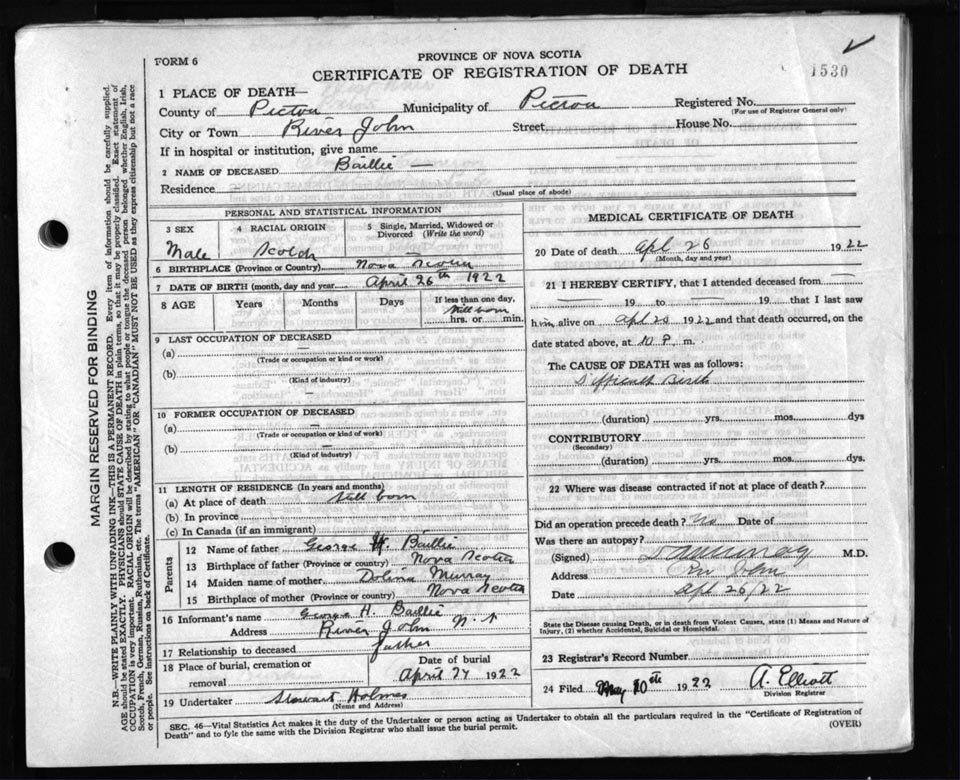 PROVINCE OF NOVA SCOTIA
FORM 6
CERTIFICATE OF REGISTRATION OF DEATH
1530
1 PLACE OF DEATH—
County of Pictou Municipality of Pictou Registered No.
(For use of Registrar General only)
City or Town River John Street House No.
If in hospital or institution, give name
2 NAME OF DECEASED Baillie —
Residence
(Usual place of abode)
PERSONAL AND STATISTICAL INFORMATION
3 SEX 4 RACIAL ORIGIN 5 Single, Married, Widowed or Divorced (Write the word)
Male Scotch
6 BIRTHPLACE (Province or Country) Nova Scotia
7 DATE OF BIRTH (month, day and year) April 26th 1922
8 AGE Years Months Days If less than one day,
Still born
hrs. or min.
9 LAST OCCUPATION OF DECEASED
(a) —
(Trade or occupation or kind of work)
(b)
(Kind of industry)
10 FORMER OCCUPATION OF DECEASED
(a) —
(Trade or occupation or kind of work)
(b) —
(Kind of industry)
11 LENGTH OF RESIDENCE (In years and months)
(a) At place of death Still born
(b) In province
(c) In Canada (if an immigrant)
Parents
12 Name of father George H. Baillie
13 Birthplace of father (Province or country) Nova Scotia
14 Maiden name of mother Dolina Murray
15 Birthplace of mother (Province or country) Nova Scotia
16 Informant's name George H. Baillie
Address River John N.S
17 Relationship to deceased father
18 Place of burial, cremation or removal
Date of burial
April 27 1922
19 Undertaker Stewart Holmes
(Name and Address)
MEDICAL CERTIFICATE OF DEATH
20 Date of death Apl 26 1922
(Month, day and year)
21 I HEREBY CERTIFY, that I attended deceased from
19 to 19 that I last saw
him alive on Apl 1922 and that death occurred, on the
date stated above, at 10 P. m.
The CAUSE OF DEATH was as follows:
Difficult Birth
(duration) yrs. mos. dys
CONTRIBUTORY
(Secondary)
(duration) yrs. mos. dys.
22 Where was disease contracted if not at place of death?
Did an operation precede death? No Date of
Was there an autopsy?
(Signed) M.D.
Address Riv John
Date Apl 26/22
State the Disease causing Death, or in death from Violent Causes, state (1) Means and Nature of
Injury, (2) whether Accidental, Suicidal or Homicidal.
23 Registrar's Record Number
24 Filed May 10th 1922 A. Elliott
Division Registrar
SEC. 46—Vital Statistics Act makes it the duty of the Undertaker or person acting as Undertaker to obtain all the particulars required in the "Certificate of Registration of
Death" and to fyle the same with the Division Registrar who shall issue the burial permit.
(OVER)
MARGIN RESERVED FOR BINDING
N.B.—WRITE PLAINLY WITH UNFADING INK—THIS IS A PERMANENT RECORD. Every item of information should be carefully supplied.
AGE should be stated EXACTLY. PHYSICIANS should STATE CAUSE OF DEATH in plain terms, so that it may be properly classified. Exact statement of
OCCUPATION is very important. RACIAL ORIGIN will be described by stating to what people or tongue the deceased person belonged, whether English, Irish,
Scotch, French, German, Russian, Ruthenian, etc. The terms "AMERICAN" OR "CANADIAN" MUST NOT BE USED as they express citizenship but not a race
or people. See instructions on back of Certificate.